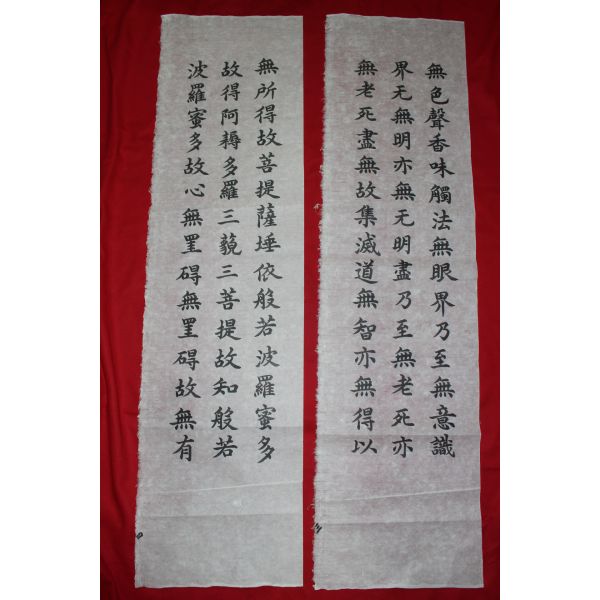 無色聲香味觸法無眼界乃至無意識
界无無明亦無无明盡乃至無老死亦
無老死盡無故集滅道無智亦無得以
無所得故菩提薩埵依般若波羅蜜多
故得阿耨多羅三藐三菩提故知般若
波羅蜜多故心無罣碍無罣碍故無有